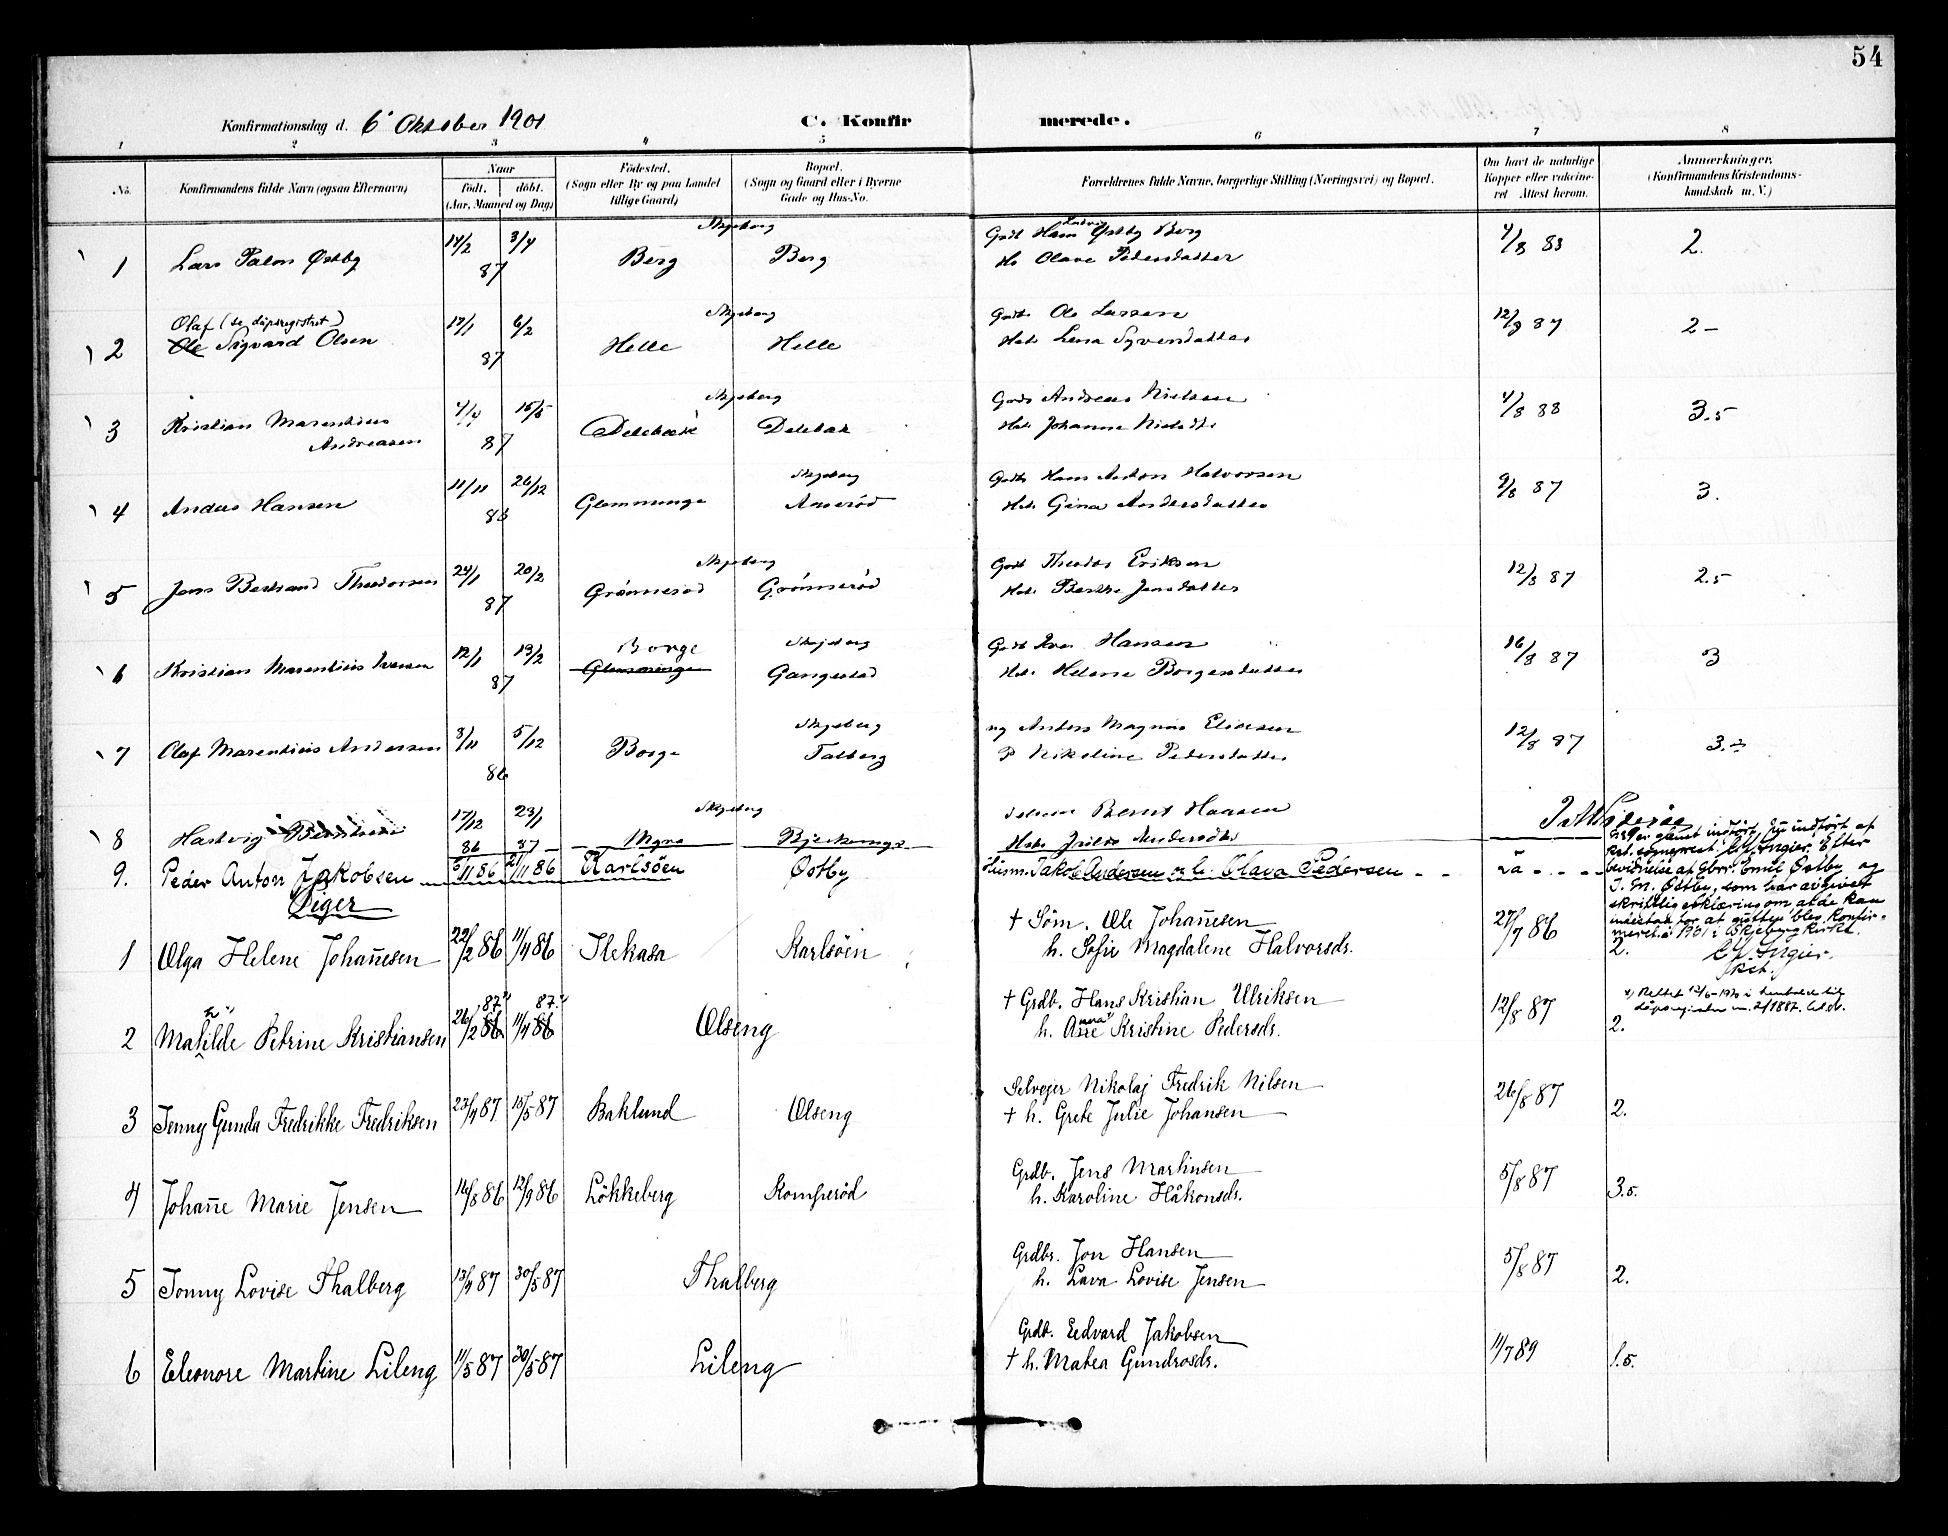 54
Konfirmationsdag d. 6' Oktober 1901 C. Konfir merede.
1 2 3 4 5 6 7 8
No. Konfirmandens fulde Navn (ogsaa Efternavn) Naar født. døbt. (Aar, Maaned og Dag) Fødested. (Sogn eller By og paa Landet tillige Gaard) Bopæl. (Sogn og Gaard eller i Byerne Gade og Hus-No. Forældrenes fulde Navne, borgerlige Stilling (Næringsvei) og Bopæl. Om havt de naturlige Kopper eller vakcineret Attest herom. Anmærkninger. (Konfirmandens Kristendomskundskab m. V.)
Skjeberg
1 Lars Palon Østby 14/2 3/4 87 Berg Berg Grdb Hans Østby Berg 4/8 88 2.
Ho Olave Pedersdatter
Olaf (se dåpsregistret) Skjeberg
2 Ole Sigvard Olsen 19/1 6/2 87 Helle Helle Grdb. Ole Larsen 12/8 87 2 -
Hst. Lena Syversdatter
Skjeberg
3 Kristian Marentius 4/4 15/5 87 Delebæk Delebæk Grdb Andreas Nielsen 4/8 88 3.5
Andreasen Hst. Johanne
Skjeberg
4 Anders Hansen 11/11 26/12 86 Glemminge Grdb Hans Anton Halvorsen 9/8 87 3.
Hst. Gina Andersdatter
Skjeberg
5 Jens Bertrand Theodorsen 24/1 20/2 87 Grønnerød Grønnerød Grdb Theodor Eriksen 12/8 87 2.5
Hst. Berthe Jensdatter
Borge Skjeberg
6 Kristian Marentius Iversen 12/1 13/2 87 Glemminge Gangestad Grdb Iver Hansen 16/8 87 3
Hst. Helene Borgersdatter
Skjeberg
7 Olaf Marentius Andersen 3/11 5/12 86 Borge Talberg Anders Magnus Eliassen 12/8 87 3.÷
P Nikoline Pedersdatter
Skjeberg
8 Hartvig 17/12 86 23/1 87 Bernt Hansen
9. Peder Anton Jakobsen 86 21/11 86 Karlsöen Østby Husm. Jakob Andersen og h. Olava Pedersen
er glemt indført, Efter
Emil Østby og
J. M. Østby, som har avgivet
skriftlig erklæring om at de kan
for at gutten blev konfirmeret
i 1901 i Skjeberg kirke.
Piger
1 Olga Helene Johañesen 22/2 86 11/4 86 Ilekasa Karlsöen † Söm. Ole Johañesen 27/7 86 2.
h. Sofie Magdalene Halvorsds.
87 87
2 Mathilde Petrine Kristiansen 26/2 86 11/4 86 Olseng † Grdb. Hans Kristian Ulriksen 12/8 87 2.
h. Kristine Pedersds.
3 Jenny Gunda Fredrikke Fredriksen 23/4 87 15/5 87 Baklund Olseng Selvejer Nikolaj Fredrik Nilsen 26/8 87 2.
† h. Grete Julie Johansen
4 Johañe Marie Jensen 16/8 86 12/9 86 Lökkeberg Kornperöd Grdb. Jens Martinsen 5/8 87 3.5.
h. Karoline Håkonsds.
5 Jonny Lovise Thalberg 13/4 87 30/5 87 Thalberg Grdbr. Jon Hansen 5/8 87 2.
h. Lava Lovise Jensen
6 Eleonore Martine Lileng 11/5 87 30/5 87 Lileng Grdb. Edvard Jakobsen 11/7 89 1.5.
† h. Matea Gundrosds.